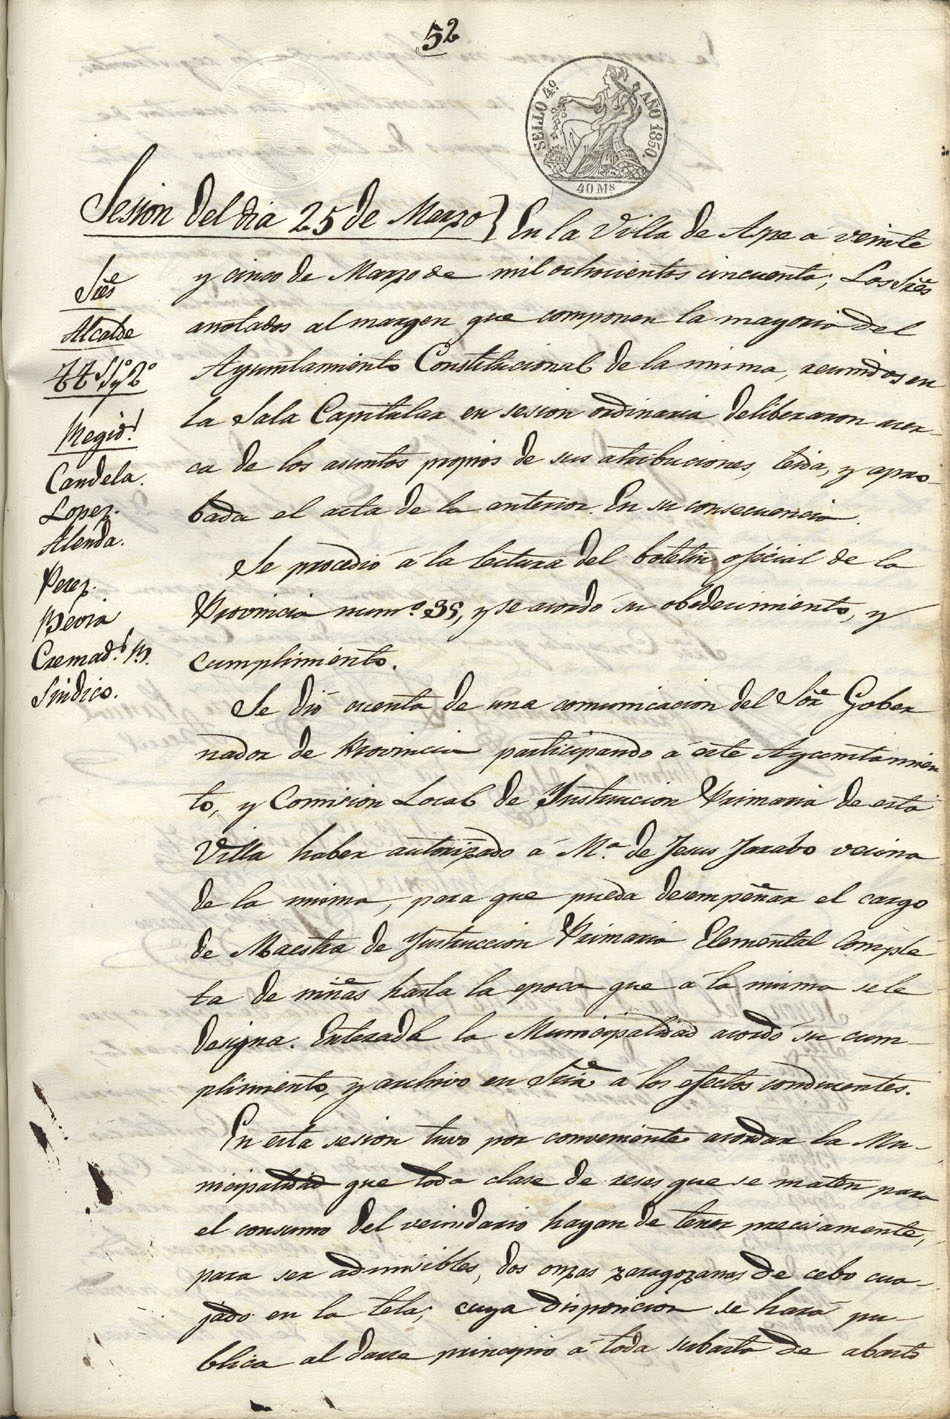 52
SELLO 4º AÑO 1850.
40 Ms
Sesion del dia 25 de Marzo } En la Villa de Aspe á veinte
y cinco de Marzo de mil ochocientos cincuenta; Los Sres
anotados al margen que componen la mayoria del
Ayuntamiento Constitucional de la misma, reunidos en
la Sala Capitular en sesion ordinaria deliberaron acer-
ca de los asuntos propios de sus atribuciones, leida, y apro-
bada el acta de la anterior. En su consecuencia.
Sres
Alcalde
TT 1º y 2º
Regid.s
Candela.
Lopez.
Alenda.
Perez.
Mevia
Cremad.s
Sindico.
Se procedió á la lectura del boletin oficial de la
Provincia num.o 35, y se acordó su obedecimiento, y
cumplimiento.
Se dió cuenta de una comunicacion del Sor. Gober
nador de Provincia participando á este Ayuntamien
to, y Comision Local de Instruccion Primaria de esta
Villa haber autorizado á M.a de Jesus Jarabo vecina
de la misma, para que pueda desempeñar el cargo
de Maestra de Instruccion Primaria Elemental Comple
ta de niñas hasta la epoca que á la misma se le
designe. Enterada la Municipalidad acordó su cum-
plimiento, y archivo en Sria á los efectos conducentes.
En esta sesion tuvo por conveniente acordar la Mu-
nicipalidad que toda clase de reses que se maten para
el consumo del vecindario hayan de tener precisamente,
para ser admisibles, dos onzas zaragozanas de cebo cua-
jado en la tela; cuya disposicion se hará pu-
blica al darse principio á toda subasta de abasto